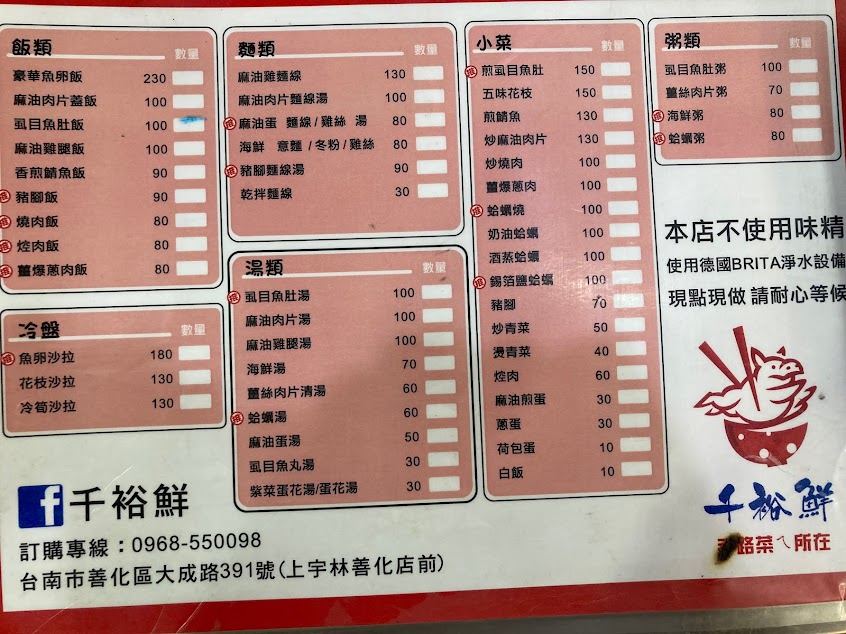 飯類 數量
豪華魚卵飯 230
麻油肉片蓋飯 100
虱目魚肚飯 100
麻油雞腿飯 100
香煎鯖魚飯 90
豬腳飯 90
燒肉飯 80
焢肉飯 80
薑爆蔥肉飯 80
冷盤 數量
魚卵沙拉 180
花枝沙拉 130
冷筍沙拉 130
麵類 數量
麻油雞麵線 130
麻油肉片麵線湯 100
麻油蛋 麵線/雞絲 湯 80
海鮮 意麵 /冬粉/雞絲 80
豬腳麵線湯 90
乾拌麵線 30
湯類 數量
虱目魚肚湯 100
麻油肉片湯 100
麻油雞腿湯 100
海鮮湯 70
薑絲肉片清湯 60
蛤蠣湯 60
麻油蛋湯 50
虱目魚丸湯 30
紫菜蛋花湯/蛋花湯 30
小菜 數量
煎虱目魚肚 150
五味花枝 150
煎鯖魚 130
炒麻油肉片 100
炒燒肉 100
薑爆蔥肉 100
蛤蠣燒 100
奶油蛤蠣 100
酒蒸蛤蠣 100
錫箔鹽蛤蠣 100
豬腳 70
炒青菜 50
燙青菜 40
焢肉 60
麻油煎蛋 30
蔥蛋 30
荷包蛋 10
白飯 10
粥類 數量
虱目魚肚粥 100
薑絲肉片粥 70
海鮮粥 80
蛤蠣粥 80
本店不使用味精
使用德國BRITA淨水設備
現點現做 請耐心等候
千裕鮮
路菜ㄟ所在
f 千裕鮮
訂購專線：0968-550098
台南市善化區大成路391號(上宇林善化店前)